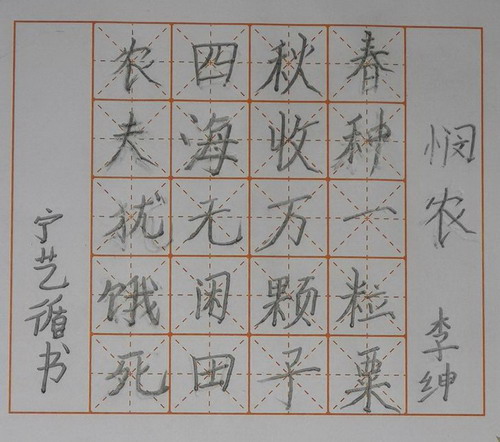 悯农 李绅
春种一粒粟
秋收万颗子
四海无闲田
农夫犹饿死
宁艺循书